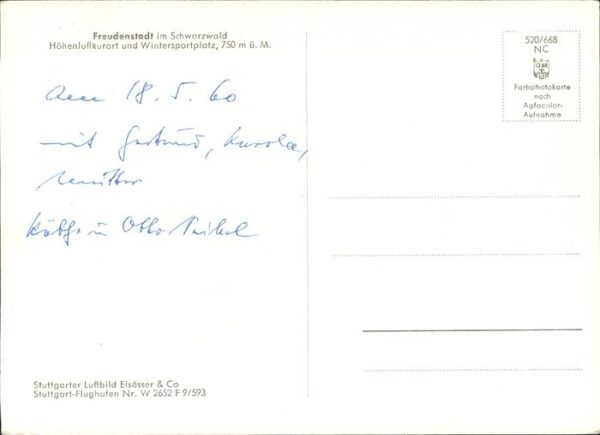 Freudenstadt im Schwarzwald
Höhenluftkurort und Wintersportplatz, 750 m ü. M.
520/668
NC
Farbphotokarte
nach
Agfacolor-
Aufnahme
Am 18. 5. 60
mit Gertrud,
Otto
Stuttgarter Luftbild Elsösser & Co
Stuttgart-Flughafen Nr. W 2652 F 9/593